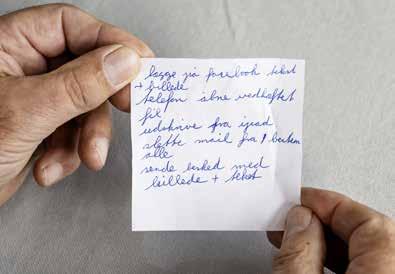 lægge på facebook tekst
+ billede
telefon åbne vedhæftet
fil
udskrive fra ipad
slette mail fra
alle
sende besked med
billede + tekst